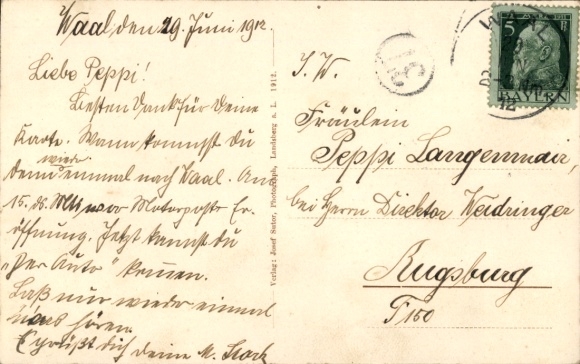 Waal, den 29 Juni 1912.
Liebe Peppi!
Besten Dank für Deine
Karte. Wann kommst du
denn wieder einmal nach Waal. Am
15. ds. Mts war Motorpost Er-
öffnung. Jetzt kannst du
"Per Auto" kommen.
Laß nur wieder einmal
was hören
Es grüßt dich deine M. Stork
Verlag: Josef Sutor, Photograph, Landsberg a. L. 1912.
S. W.
Fräulein
Peppi Langenmair,
bei Herrn Direktor Weidringer
Augsburg
150
WAAL
12
5
BAYERN